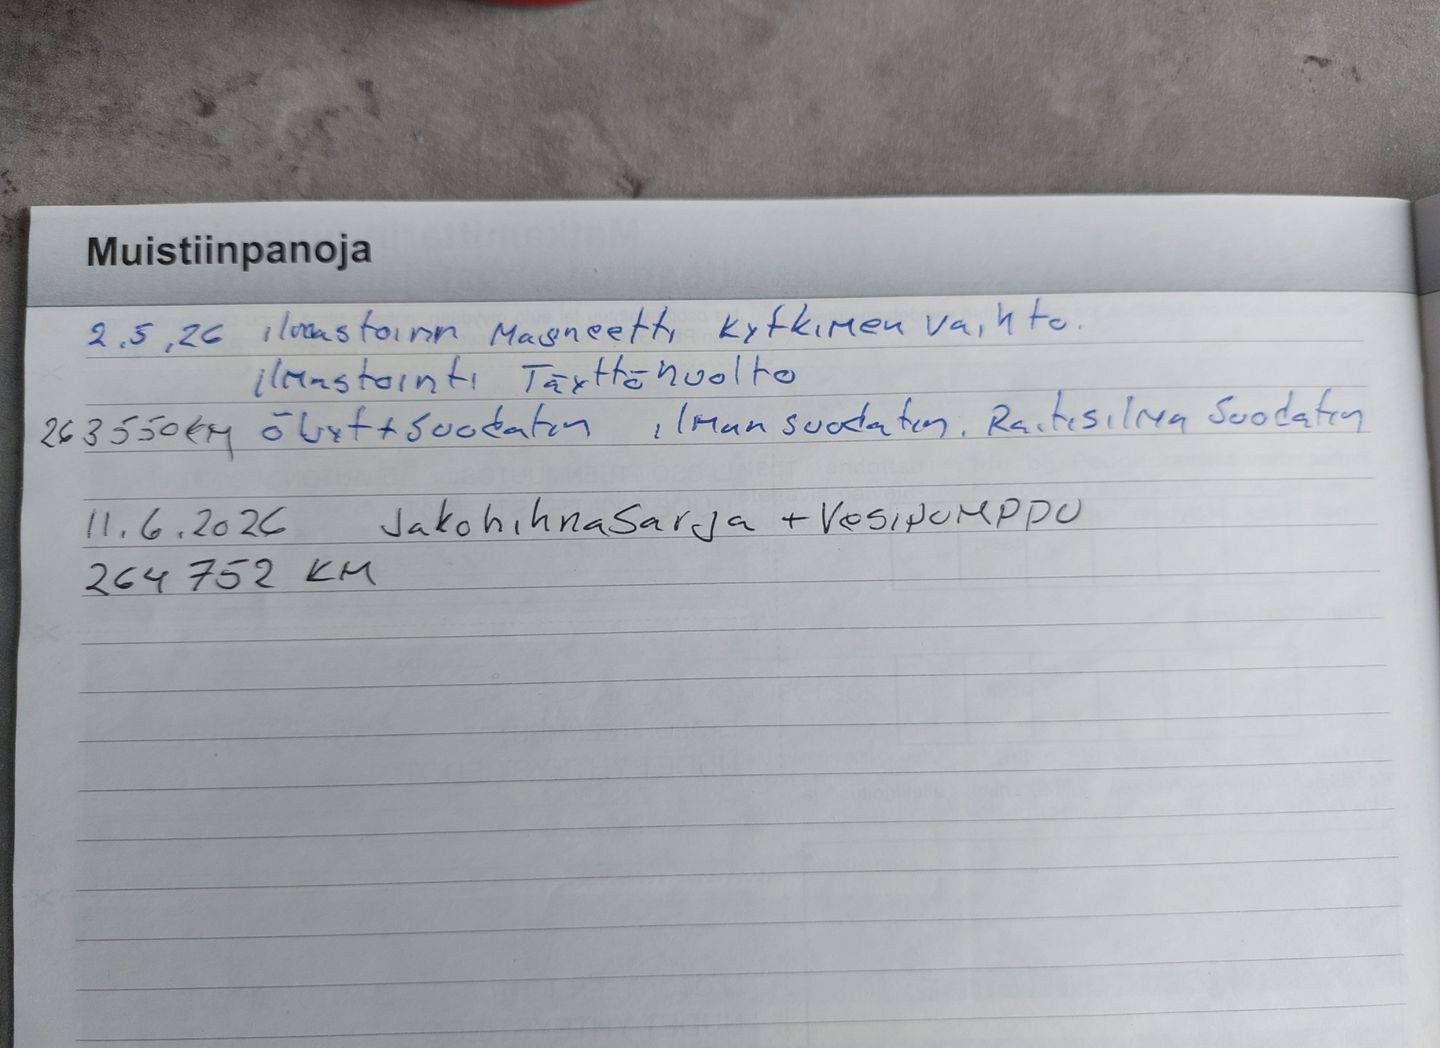 Muistiinpanoja
2.5.26 ilmastoinn Magneetti Kytkimen vaihto.
ilmastointi Täyttöhuolto
263550km Öljyt + Suodatin ilman suodatin. Raitisilma Suodatin
11.6.2026 Jakohihnasarja + Vesipumppu
264752 KM